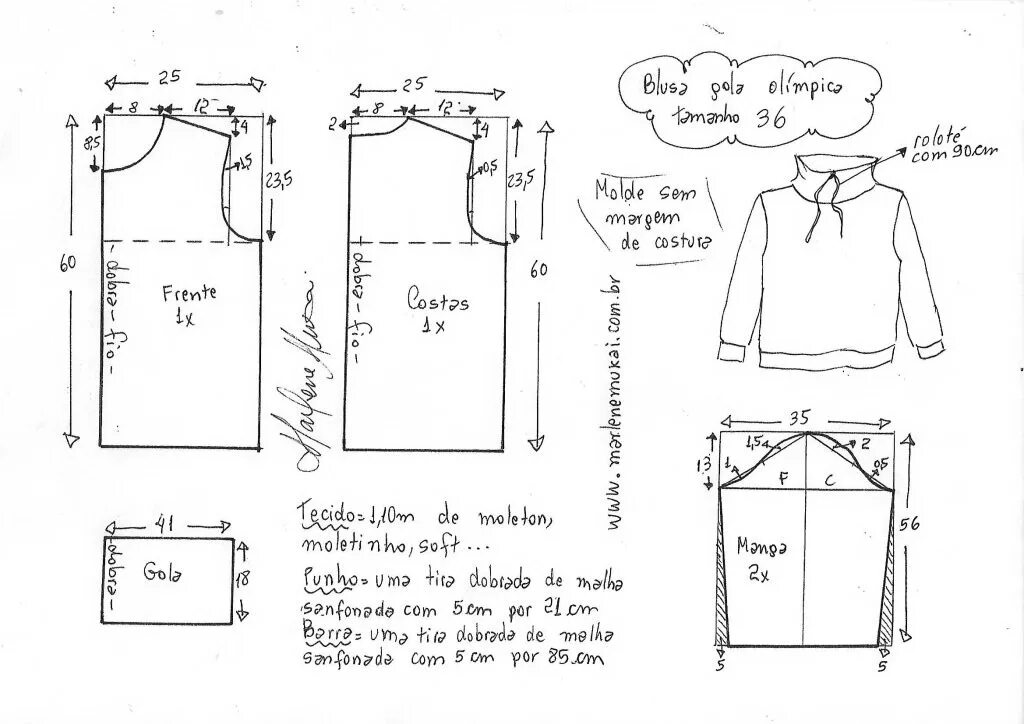 25
8
12
8,5
4
1,5
23,5
60
- dobra - fio -
Frente
1x
25
8
12
2
4
0,5
23,5
60
dobra - fio -
Costas
1x
Blusa gola olímpica
tamanho 36
roloté
com 90.cm
Molde sem
margem
de costura
www.marlenemukai.com.br
41
18
- dobra -
Gola
Tecido = 1,10m de moleton,
moletinho, soft...
Punho = uma tira dobrada de malha
sanfonada com 5cm por 21.cm
Barra = uma tira dobrada de malha
sanfonada com 5cm por 85.cm
35
13
1
1,5
2
0,5
F
C
56
Manga
2x
5
5